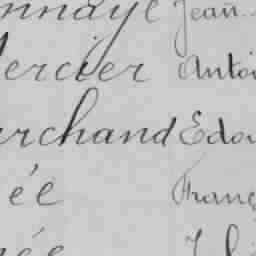 onnaye Jean
Mercier Antoi
archand Edou
ée Franç
ée